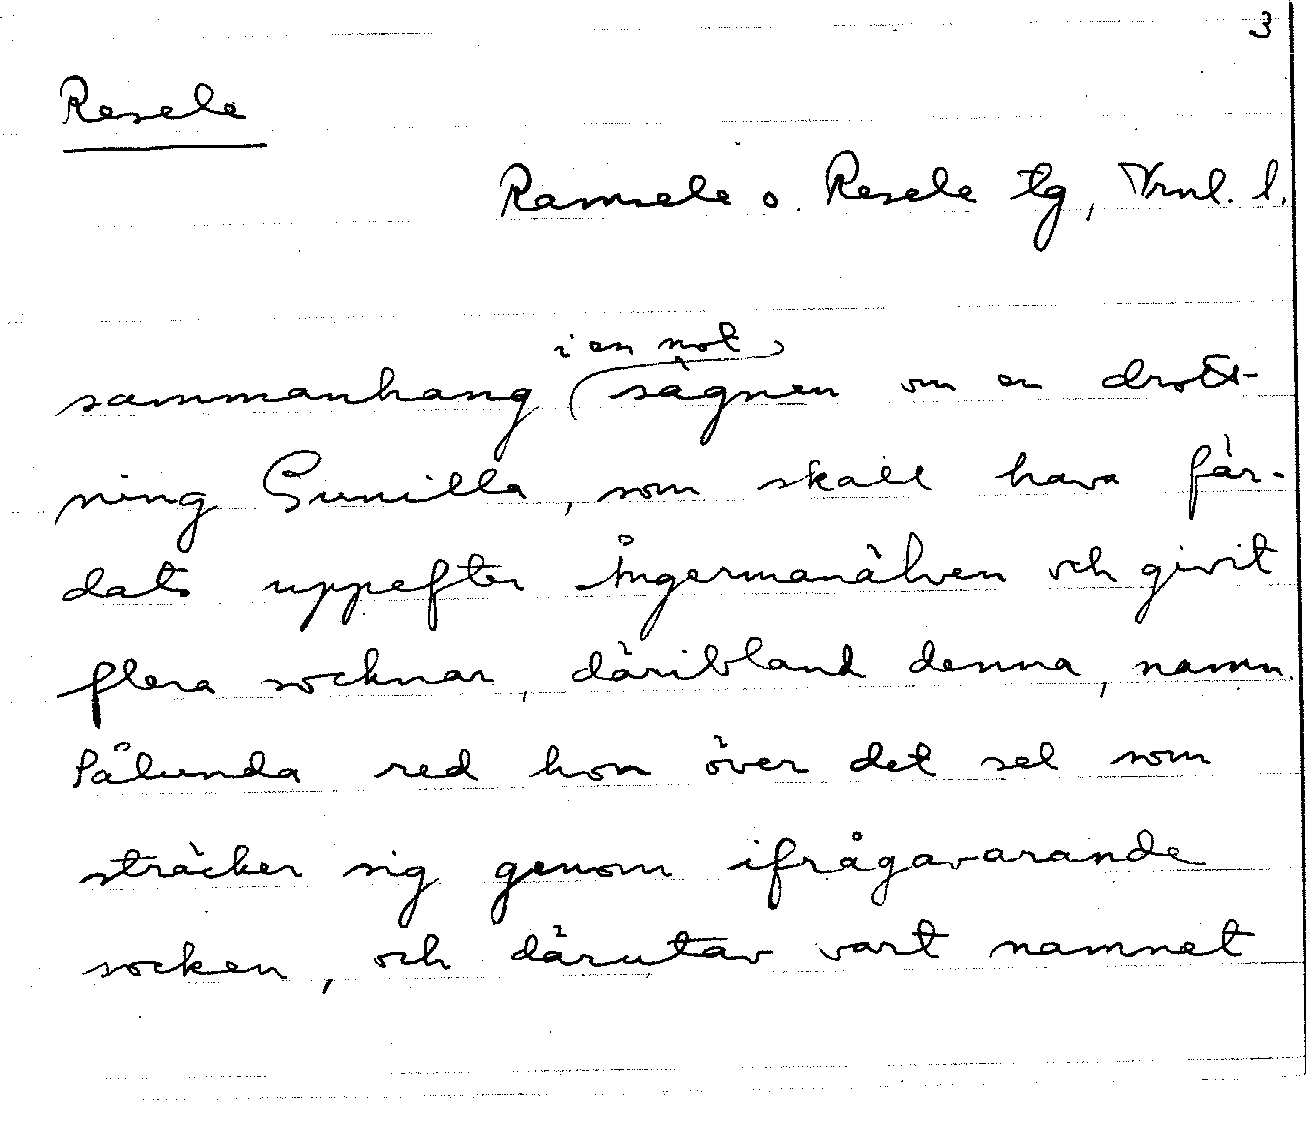 3
Resele
Ramsele o. Resele tg, Vrnl. l.
i en not
sammanhang sägnen om en drott-
ning Gunilla, som skall hava fär-
dats uppefter Ångermanälven och givit
flera socknar, däribland denna, namn.
Sålunda red hon över det sel som
sträcker sig genom ifrågavarande
socken, och därutav vart namnet